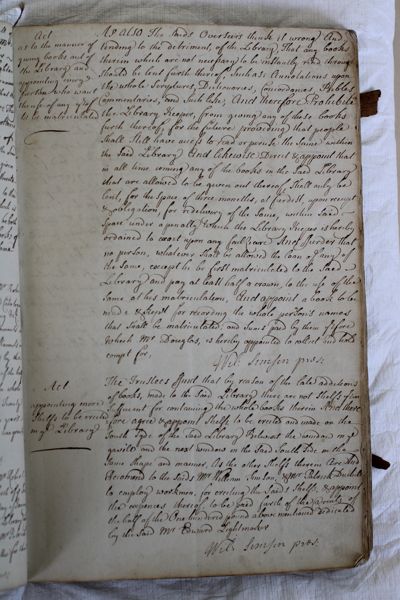 Act
as to the manner of
giving books out of
the Library and
appointing every
person who want
the use of any of ym
to be matriculated
As Also The Saids Overseers think it wrong And
tending to the detriment of the Library That any books
therein which are not necessary to be instantly read through
Should be lent furth thereof Such as Annotations upon
the whole Scriptures, Dictionaries, Concordances, Bibles
Commentaries, and Such like, And Therefore Prohibite
the Library Keeper, from giving any of these books
furth thereof, for the future providing that people
Shall Still have access to read or peruse the Same within
the Said Library And Likewise Direct & appoint that
in all time coming any of the books in the Said Library
that are allowed to be given out thereof Shall only be
lent, for the Space of three months, at furdest, upon receipt
& obligation, for redelivery of the Same, within Said
Space under a penalty which the Library Keeper is hereby
ordained to exact upon any failzure And furder that
no person, whatever Shall be allowed the loan of any of
the Same, except he be first matriculated to the Said
Library and pay at least half a crown, to the use of the
Same at his matriculation, And appoint a book to be
made & kept for recording the whole person's names
that Shall be matriculated, and Sums paid by them before
which Mr Douglas, is hereby appointed to collect and
compt for,
Will: Simson pres:
Act
appointing more
Shelfs to be erected
in ye Library
The Trustees ffind that by reason of the late additions
of books, made to the Said Library there are not Shelfs Suf
ficient for containing the whole books therein And there
fore agree & appoint Shelfs to be erected and made on the
South Side of the Said Library Betwixt the window in ye
gavell and the next window in the Said South Side in the
Same Shape and manner, As the other Shelfs therein And
Recomend to the Saids Mr William Simson & Mr Patrick
to employ workmen for erecting the Saids Shelfs, & appoint
the expences thereof to be paid furth of the @rents of
the half of the One hundred pound above mentioned dedicated
by the Said Mr Edward Lightmaker
Will: Simson pres: